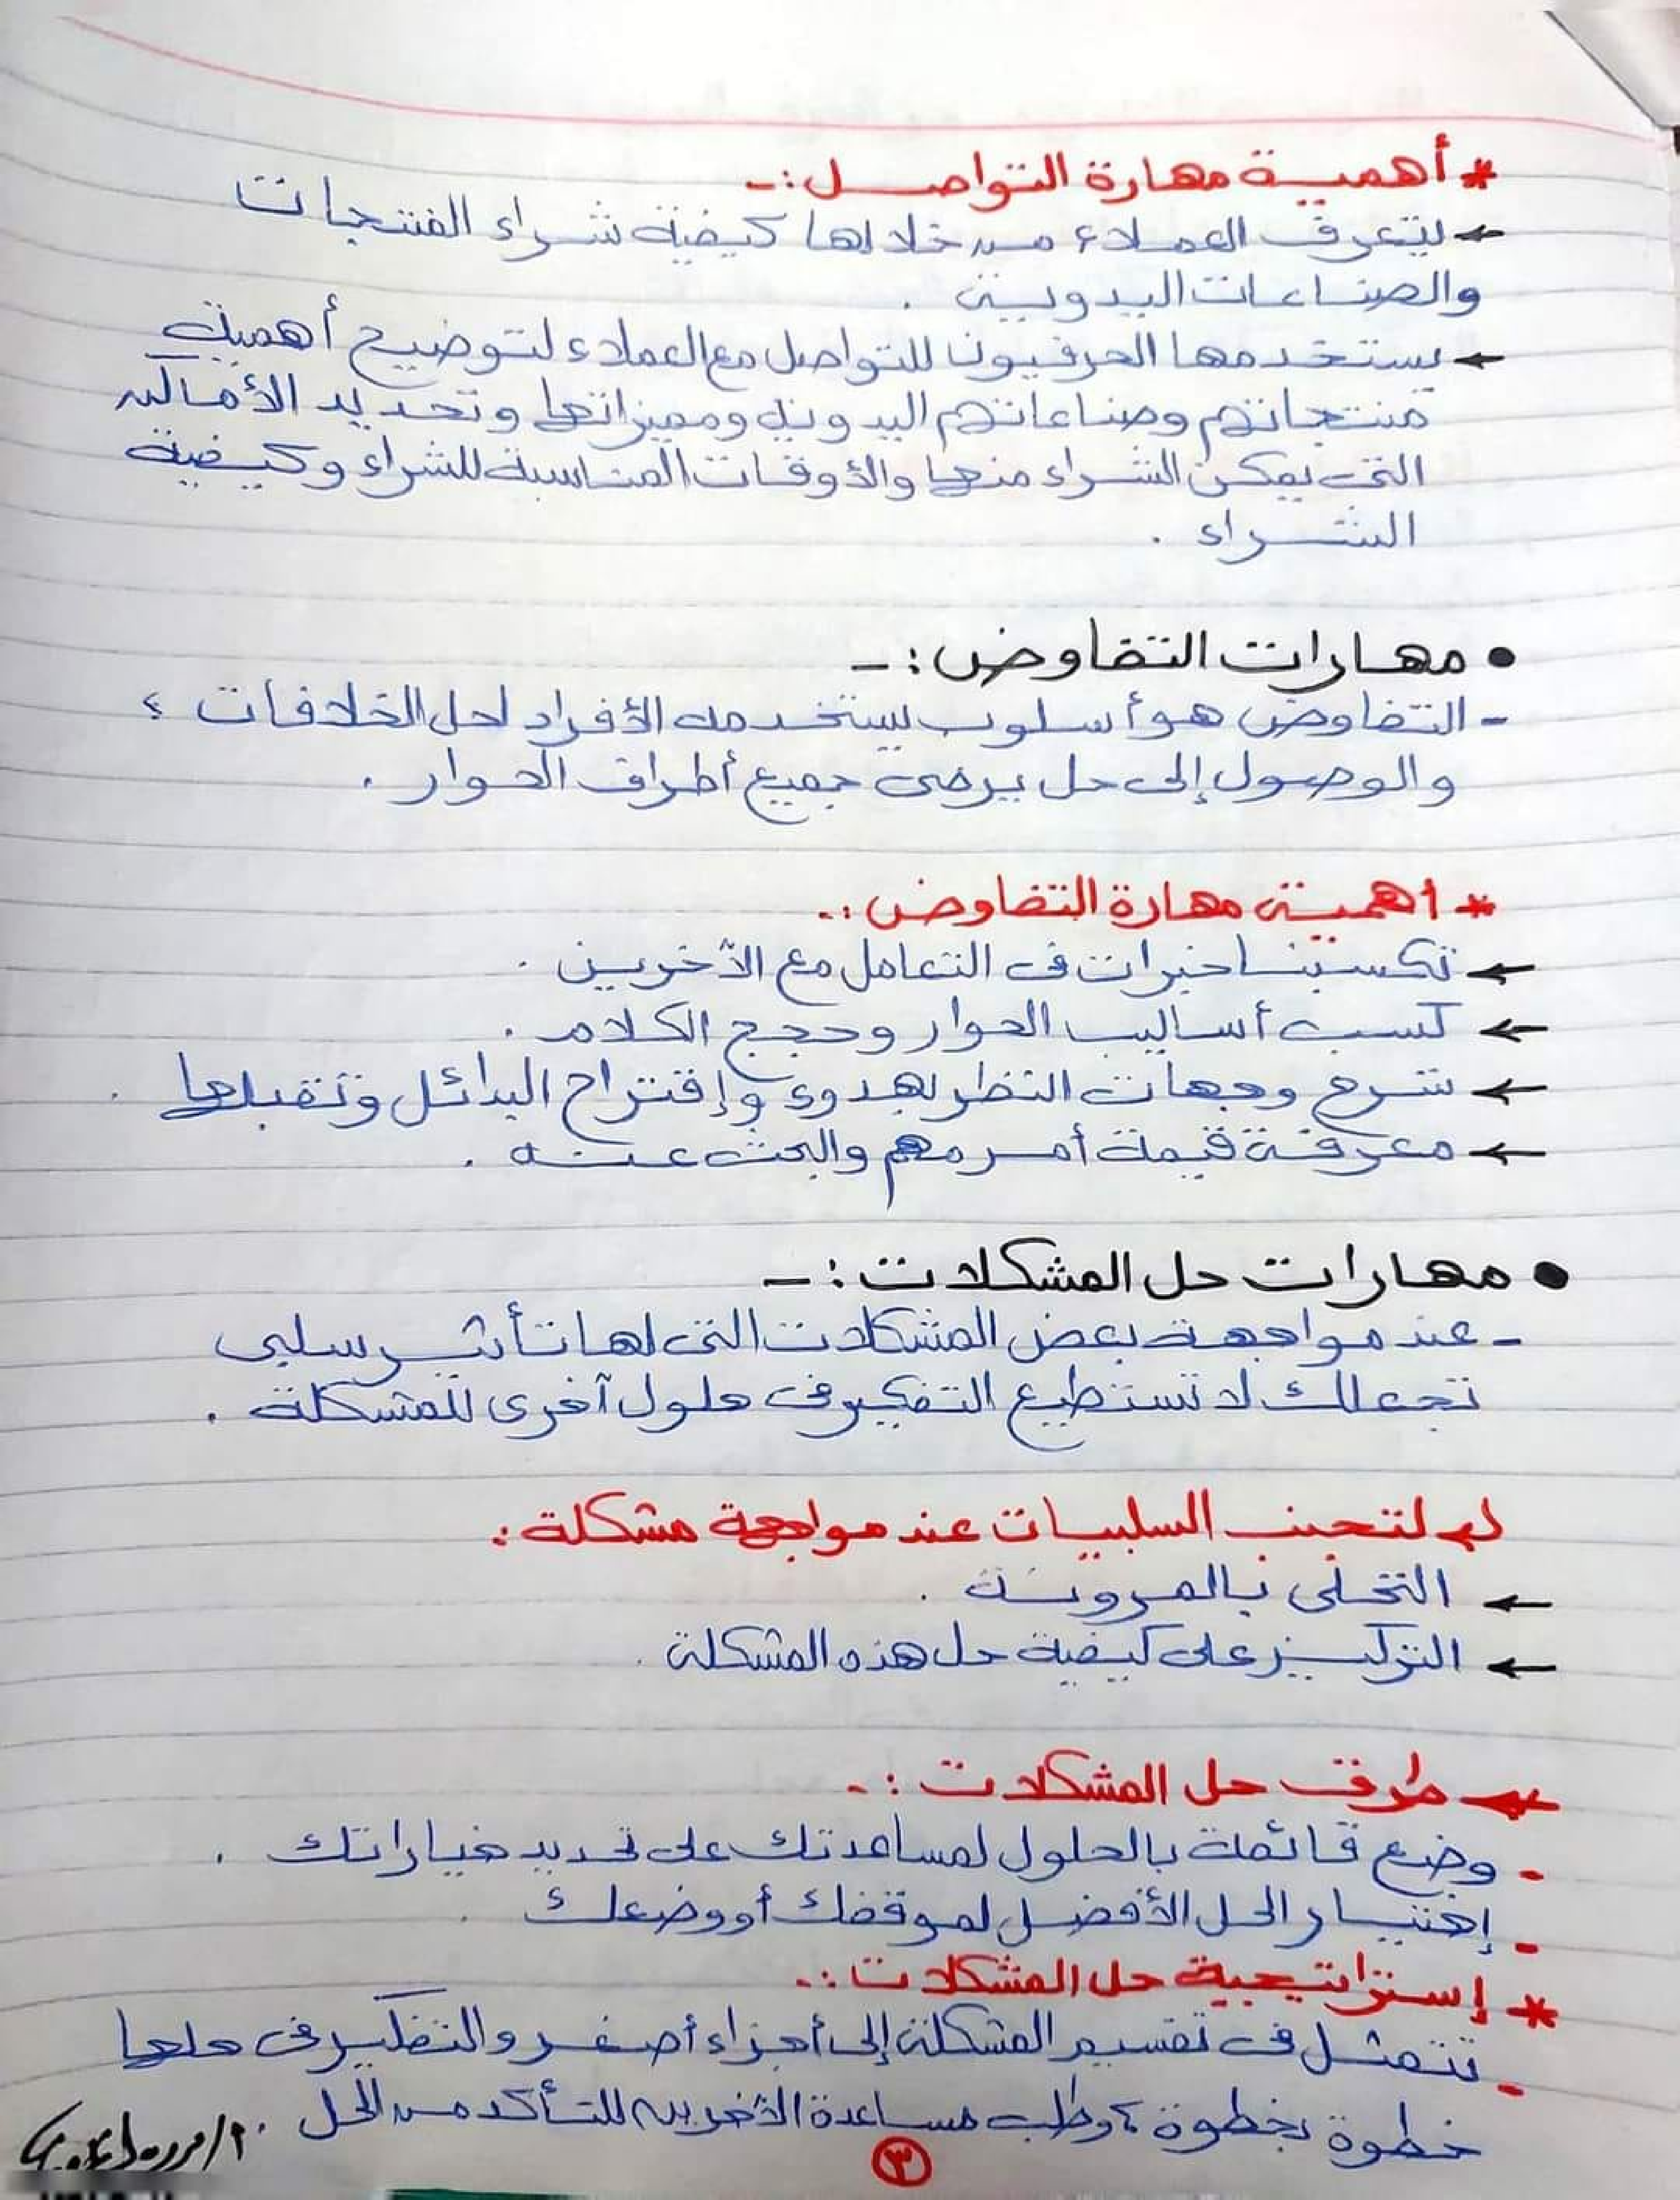 * أهمية مهارة التواصل :-
← يتعرف العملاء من خلالها كيفية شراء المنتجات
والصناعات اليدوية .
← يستخدمها الحرفيون للتواصل مع العملاء لتوضيح أهمية
منتجاتهم وصناعاتهم اليدوية ومميزاتها وتحديد الأماكن
التى يمكن الشراء منها والأوقات المناسبة للشراء وكيفية
الشراء .
• مهارات التفاوض :-
- التفاوض هو أسلوب يستخدمه الأفراد لحل الخلافات ،
والوصول إلى حل يرضى جميع أطراف الحوار .
* اهمية مهارة التفاوض :-
← تكسبنا خبرات فى التعامل مع الآخرين .
← كسب أساليب الحوار وحجج الكلام .
← شرح وجهات النظر بهدوء وإقتراح البدائل وتقبلها .
← معرفة قيمة أمر مهم والبحث عنه .
• مهارات حل المشكلات :-
- عند مواجهة بعض المشكلات التى لها تأثير سلبى
تجعلك لا تستطيع التفكير فى حلول آخرى للمشكلة .
لتجنب السلبيات عند مواجهة مشكلة :
← التحلى بالمرونة .
← التركيز على كيفية حل هذه المشكلة .
← طرق حل المشكلات :-
- وضع قائمة بالحلول لمساعدتك على تحديد خياراتك .
- إختيار الحل الأفضل لموقفك أو وضعك .
* إستراتيجية حل المشكلات :-
- تتمثل فى تقسيم المشكلة إلى أجزاء أصغر والتفكير فى حلها
خطوة بخطوة ، وطلب مساعدة الآخرين للتأكد من الحل .
٣